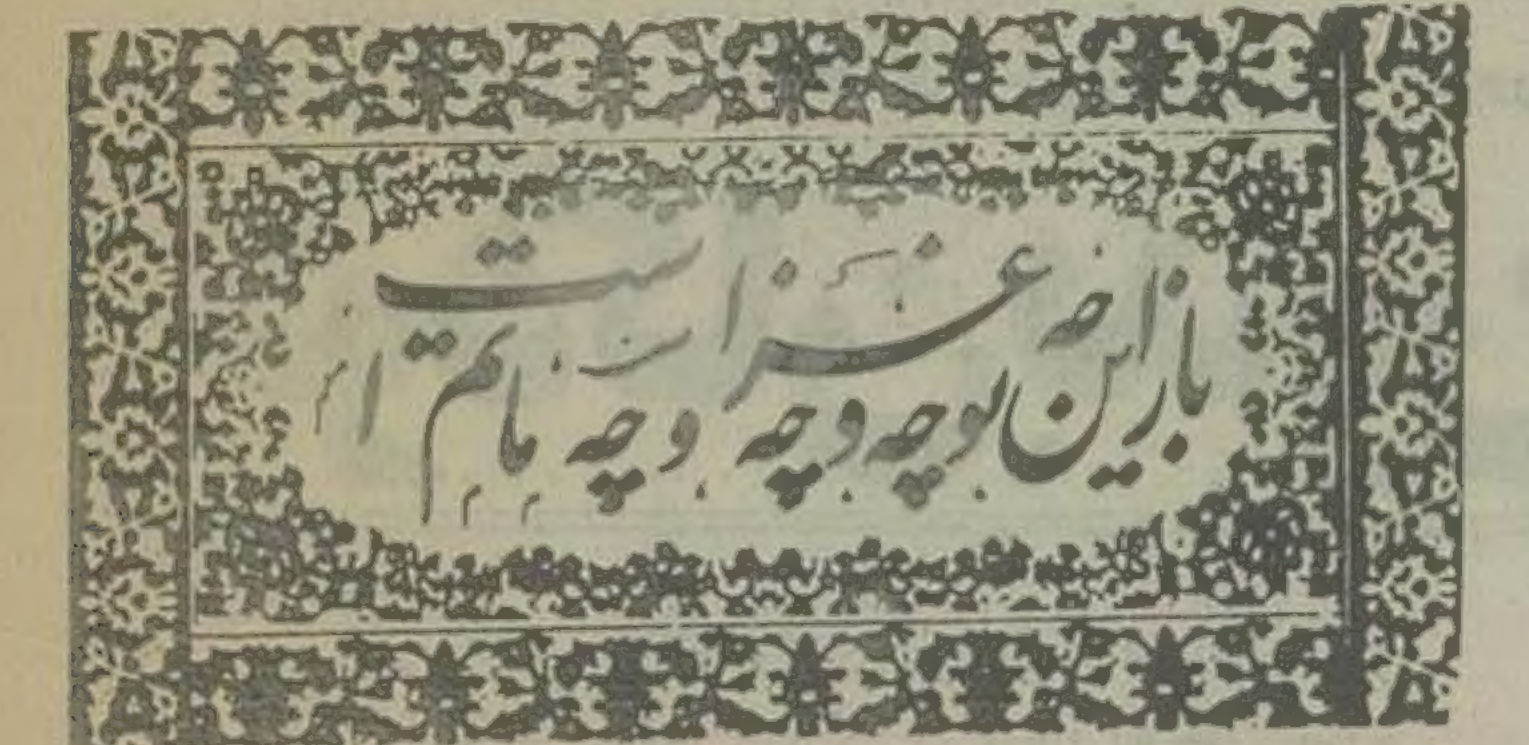 باز این چه نوحه و چه عزا و چه ماتم است